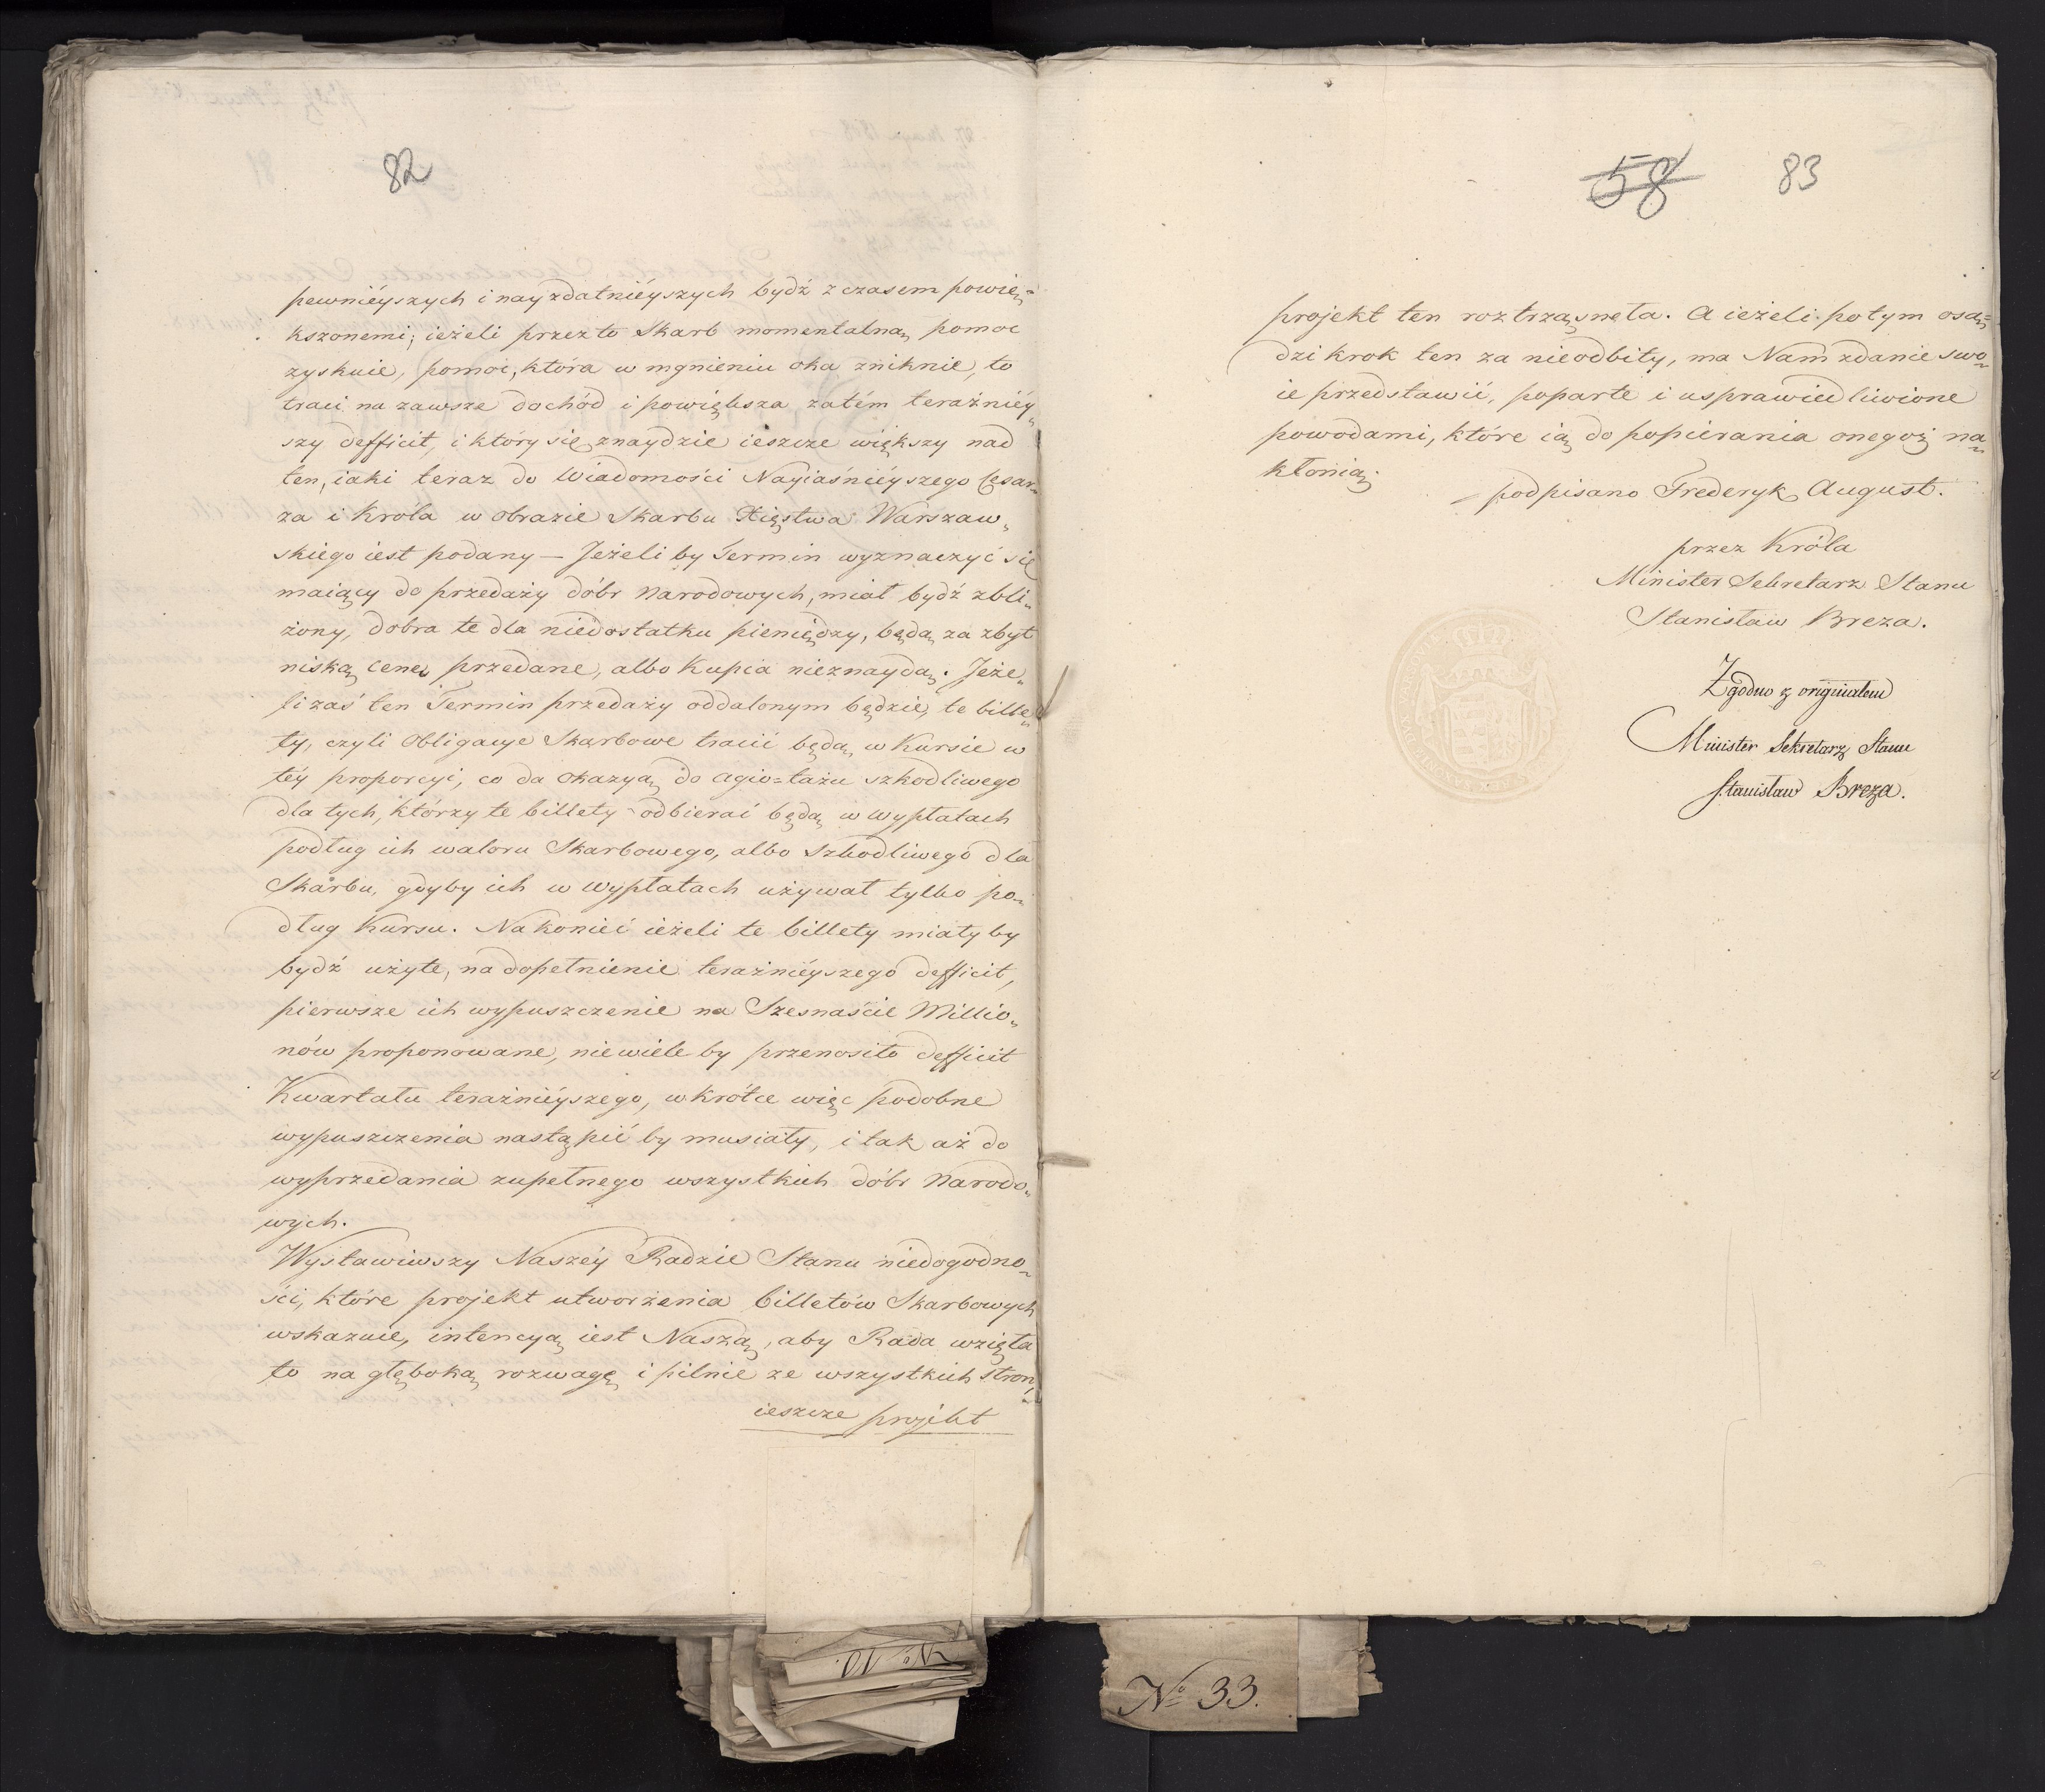 82
pewniéyszych i nayzdatniéyszych bydź z czasem powię=
kszonemi; ieżeli przez to Skarb momentalną pomoc
zyskuie, pomoc, która w mgnieniu oka zniknie, to
traci na zawsze dochód i powiększa zatém teraźniéy„
szy defficit, i który się znaydzie ieszcze większy nad
ten, iaki teraz do Wiadomości Nayiaśniéyszego Cesar„
za i Króla w obrazie Skarbu Xięstwa Warszaw„
skiego iest podany — Jeżeli by Termin wyznaczyć się
maiący do przedaży dóbr Narodowych, miał bydź zbli„
żony, dobra te dla niedostatku pieniędzy, będą za zbyt
niską cenę przedane, albo Kupca nieznaydą. Jeże„
li zaś ten Termin przedaży oddalonym będzie, te bille„
ty, czyli Obligacye Skarbowe tracić będą w Kursie w
téy proporcyi, co da okazyą do agio=tażu szkodliwego
dla tych, którzy te billety odbierać będą w wypłatach
podług ich waloru Skarbowego, albo szkodliwego dla
Skarbu, gdyby ich w wypłatach używał tylko po„
dług Kursu. Nakoniec ieżeli te billety miały by
bydź użyte, na dopełnienie teraźniéyszego defficit,
pierwsze ich wypuszczenie na Szesnaście Millio„
nów proponowane, niewiele by przenosiło defficit
Kwartału teraźniéyszego, wkrótce więc podobne
wypuszczenia nastąpić by musiały, i tak aż do
wyprzedania zupełnego wszystkich dóbr Narodo„
wych.
Wystawiwszy Naszéy Radzie Stanu niedogodno„
ści, które projekt utworzenia billetów Skarbowych
wskazuie, intencyą iest Naszą, aby Rada wzięła
to na głęboką rozwagę i pilnie ze wszystkich stron
ieszcze projekt
No. 10.
58 83
projekt ten roztrząsnęła. A ieżeli potym osą„
dzi krok ten za nieodbity, ma Nam zdanie swo„
ie przedstawić, poparte i usprawiedliwione
powodami, które ią do popierania onegoż na„
kłonią.
podpisano Frederyk August.
przez Króla
Minister Sekretarz Stanu
Stanisław Breza.
Zgodno z originałem
Minister Sekretarz Stanu
Stanisław Breza.
No. 33.